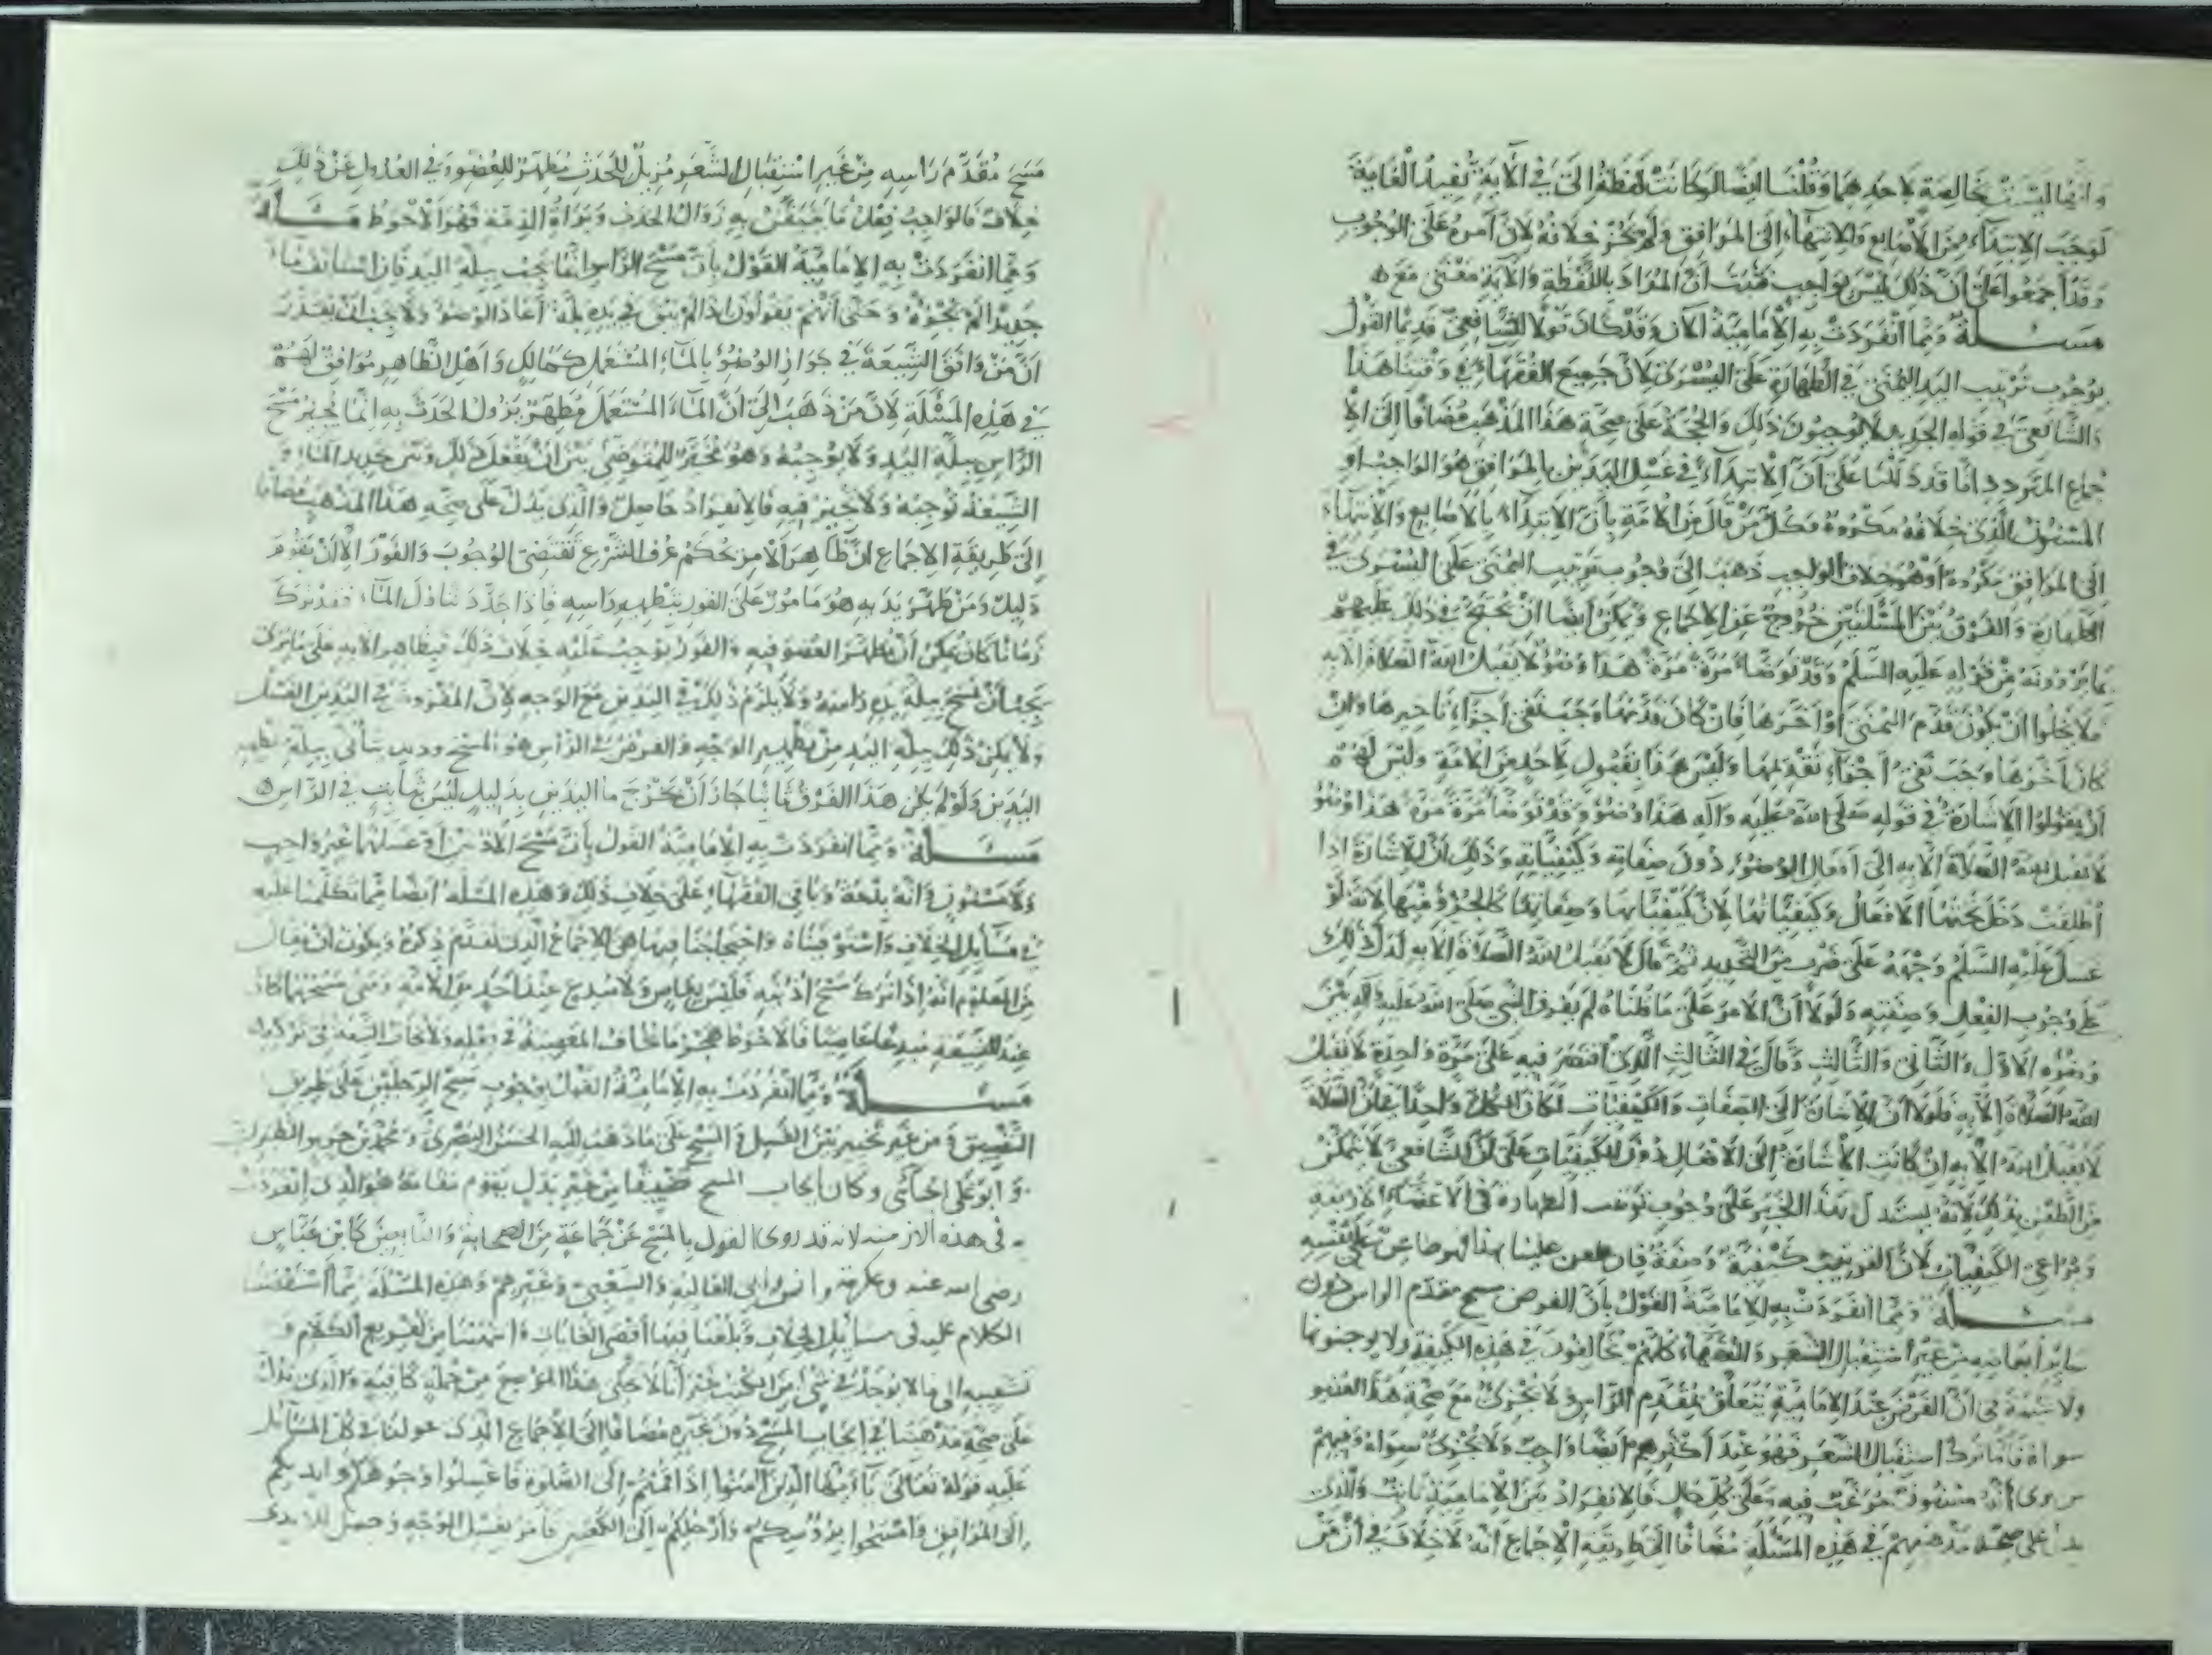 وأنها ليست بخالصة لأحدهما وقلنا أيضا لو كانت لفظة إلى في الآية تفيد الغاية
لوجب الابتداء من الأصابع والانتهاء إلى المرافق ولم يجز خلافه لأن أمره على الوجوب
وقد أجمعوا على أن ذلك ليس بواجب فثبت أن المراد باللفظة والآية معنى مع ه
مسئلة ومما انفردت به الإمامية الآن وقد كان قولا للشافعي قديما القول
بوجوب ترتيب اليد اليمنى في الطهارة على اليسرى لأن جميع الفقهاء في وقتنا هذا
والشافعي في قوله الجديد لا يوجبون ذلك والحجة على صحة هذا المذهب مضافا إلى الا
جماع المتردد انا قد دللنا على أن الابتداء في غسل اليدين بالمرافق هو الواجب أو
المسنون الذي خلافه مكروه فكل من قال من الأمة بأن الابتداء بالأصابع والانتهاء
إلى المرافق مكروه أو هو خلاف الواجب ذهب إلى وجوب ترتيب اليمنى على اليسرى في
الطهارة والفرق بين المسئلتين خروج عن الإجماع ويمكن أيضا أن يحتج في ذلك عليهم
بما يروونه من قوله عليه السلم وقد توضأ مرة مرة هذا وضوء لا يقبل الله الصلاة إلا به
فلا يخلوا ان يكون قدم اليمنى أو أخرها فإن كان قدمها وجب نفي أجزاء تأخيرها وان
كان أخرها وجب نفي أجزاء تقديمها وليس هذا بقول لأحد من الأمة وليس لهم
أن يقولوا الإشارة في قوله صلى الله عليه وآله هذا وضوء وقد توضأ مرة مرة هذا وضوء
لا يقبل الله الصلاة إلا به إلى أفعال الوضوء دون صفاته وكيفياته وذلك أن الإشارة إذا
أطلقت دخل تحتها الأفعال وكيفياتها لأن كيفياتها وصفاتها كالجزؤ فيها لأنه لو
غسل عليه السلم وجهه على ضرب من التحديد ثم قال لا يقبل الله الصلاة إلا به لدل ذلك
على وجوب الفعل وصفته ولولا أن الأمر على ما قلناه لم يفرق النبي صلى الله عليه وآله بين
وضوءه الأول والثاني والثالث وقال في الثالث الذي اقتصر فيه على مرة واحدة لا يقبل
الله الصلاة إلا به فلولا أن الإشارة إلى الصفات والكيفيات لكان الكل واحدا في أن الصلاة
لا يقبل الله إلا به ان كانت الإشارة إلى الأفعال دون الكيفيات على أن الشافعي لا يتمكن
من الطعن بذلك لأنه يستدل بهذا الخبر على وجوب ترتيب الطهارة في الأعضاء الأربعة
ويراعي الكيفيات لأن الترتيب كيفية وصفة فإن طعن علينا بهذا فهو طاعن على نفسه
مسئلة ومما انفردت به الإمامية القول بأن الفرض مسح مقدم الراس دون
سائر أبعاضه من غير استقبال الشعر والفقهاء كلهم يخالفون في هذه الكيفية ولا يوجبونها
ولا شبهة في أن الفرض عند الإمامية يتعلق بمقدم الرأس ولا يجزئ مع صحة هذا العضو
سواه فأما ترك استقبال الشعر فهو عند أكثرهم أيضا واجب ولا يجزئ سواه وفيهم
من يرى أنه مسنون مرغب فيه وعلى كل حال فالانفراد من الإمامية ثابت والذي
يدل على صحة مذهبهم في هذه المسئلة مضافا إلى طريقة الإجماع أنه لا خلاف في أن من
مسح مقدم رأسه من غير استقبال الشعر مزيل للحدث مطهر للعضو وفي العدول عن ذلك
خلاف فالواجب فعل ما يتيقن به زوال الحدث وبراءة الذمة فهو الأحوط مسئلة
ومما انفردت به الإمامية القول بأن مسح الرأس إنما يجب ببلة اليد فإن استأنف ماء
جديدا لم يجزه وحتى أنهم يقولون إذا لم يبق في يده بلة أعاد الوضوء ولا يجب أن يعتذر
ان من وافق الشيعة في جواز الوضوء بالماء المستعمل كمالك وأهل الظاهر موافق لهم
في هذه المسئلة لأن من ذهب إلى أن الماء المستعمل مطهر يزول الحدث به إنما يجيز مسح
الرأس ببلة اليد ولا يوجبه وهو مخير للمتوضئ بين أن يفعل ذلك وبين تجديد الماء و
الشيعة توجبه ولا تخير فيه فالانفراد حاصل والذي يدل على صحة هذا المذهب مضافا
إلى طريقة الإجماع ان ظاهر الأمر بحكم عرف الشرع يقتضي الوجوب والفور إلا أن يقوم
دليل ومن طهر يديه هو مأمور على الفور بتطهير رأسه فإذا جدد تناول الماء فقد ترك
زمانا كان يمكن أن يطهر العضو فيه والفور يوجب عليه خلاف ذلك فبظاهر الآية على ما ترى
يجب أن يمسح ببلة يده رأسه ولا يلزم ذلك في اليدين مع الوجه لأن المفروض في اليدين الغسل
ولا يمكن ذلك ببلة اليد من تطهير الوجه والفرض في الرأس هو المسح وذلك يتأتى ببلة تطهير
اليدين ولو لم يكن هذا الفرق ثابتا جاز أن تخرج ما اليدين بدليل ليس بثابت في الرأس ه
مسئلة ومما انفردت به الإمامية القول بأن مسح الأذنين أو غسلهما غير واجب
ولا مسنون وأنه بدعة وباقي الفقهاء على خلاف ذلك وهذه المسئلة أيضا مما تكلمنا عليه
في مسائل الخلاف واستوفيناه واحتجاجنا فيها هي الإجماع الذي تقدم ذكره ويكون أن يقال
من المعلوم انه إذا ترك مسح أذنيه فليس بعاص ولا مبدع عند أحد من الأمة ومتى مسحهما كان
عند الشيعة مبدعا عاصيا فالأحوط هجر ما يخاف المعصية في فعله ولا يخاف التبعة في تركه
مسئلة ومما انفردت به الإمامية القول بوجوب مسح الرجلين على طريق
التضييق و من غير تخيير بين الغسل و المسح على ما ذهب إليه الحسن البصري ومحمد بن جرير الطبري
و أبو علي الجبائي وكان إيجاب المسح تضييقا من غير بدل يقوم مقامه هو الذي انفردت
به في هذه الأزمنة لأنه قد روي القول بالمسح عن جماعة من الصحابة والتابعين كابن عباس
رضي الله عنه وعكرمة وأنس وأبي العالية والشعبي وغيرهم وهذه المسئلة مما استقصينا
الكلام عليه في مسائل الخلاف وبلغنا فيها أقصى الغايات وانتهينا من تفريع الكلام و
تشعيبه إلى ما لا يوجد في شيء من الكتب غير أنا لا نخلي هذا الموضع من جملة كافية والذي يدل
على صحة مذهبنا في إيجاب المسح دون غيره مضافا إلى الإجماع الذي عولنا في كل المسائل
عليه قوله تعالى يا أيها الذين آمنوا إذا قمتم إلى الصلوة فاغسلوا وجوهكم وأيديكم
إلى المرافق وامسحوا برءوسكم وأرجلكم إلى الكعبين فأمر بغسل الوجه وجعل للأيدي